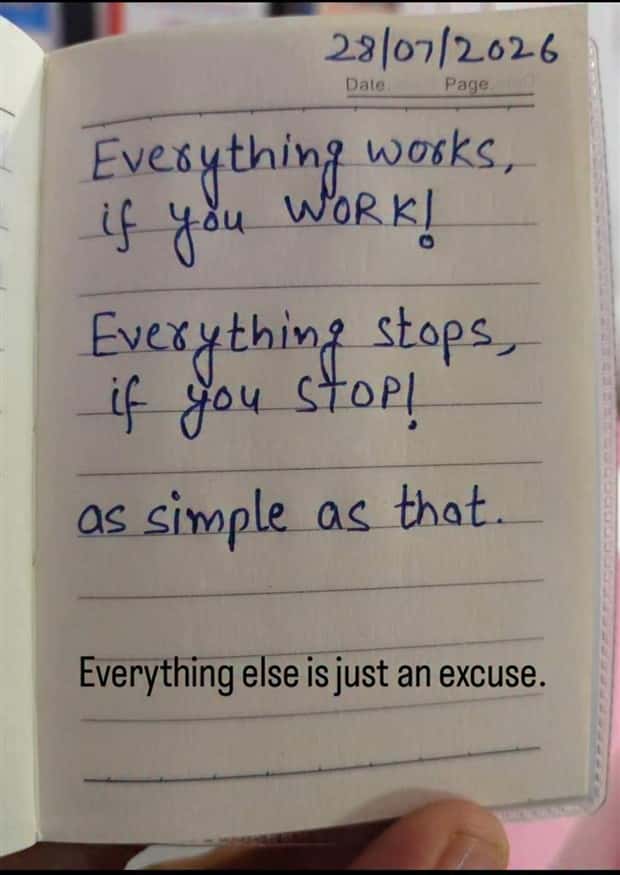 28/07/2026
Date. Page.
Everything works,
if you WORK!
Everything stops,
if you STOP!
as simple as that.
Everything else is just an excuse.